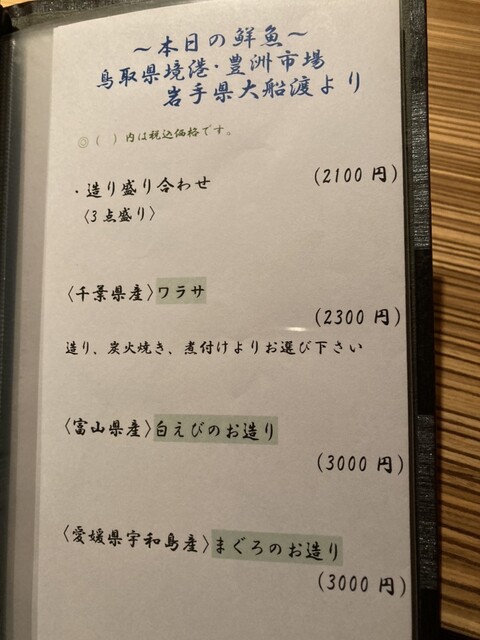 ～本日の鮮魚～
鳥取県境港・豊洲市場
岩手県大船渡より
◎（　）内は税込価格です。
・造り盛り合わせ
(2100 円)
〈3点盛り〉
〈千葉県産〉ワラサ
(2300 円)
造り、炭火焼き、煮付けよりお選び下さい
〈富山県産〉白えびのお造り
(3000 円)
〈愛媛県宇和島産〉まぐろのお造り
(3000 円)